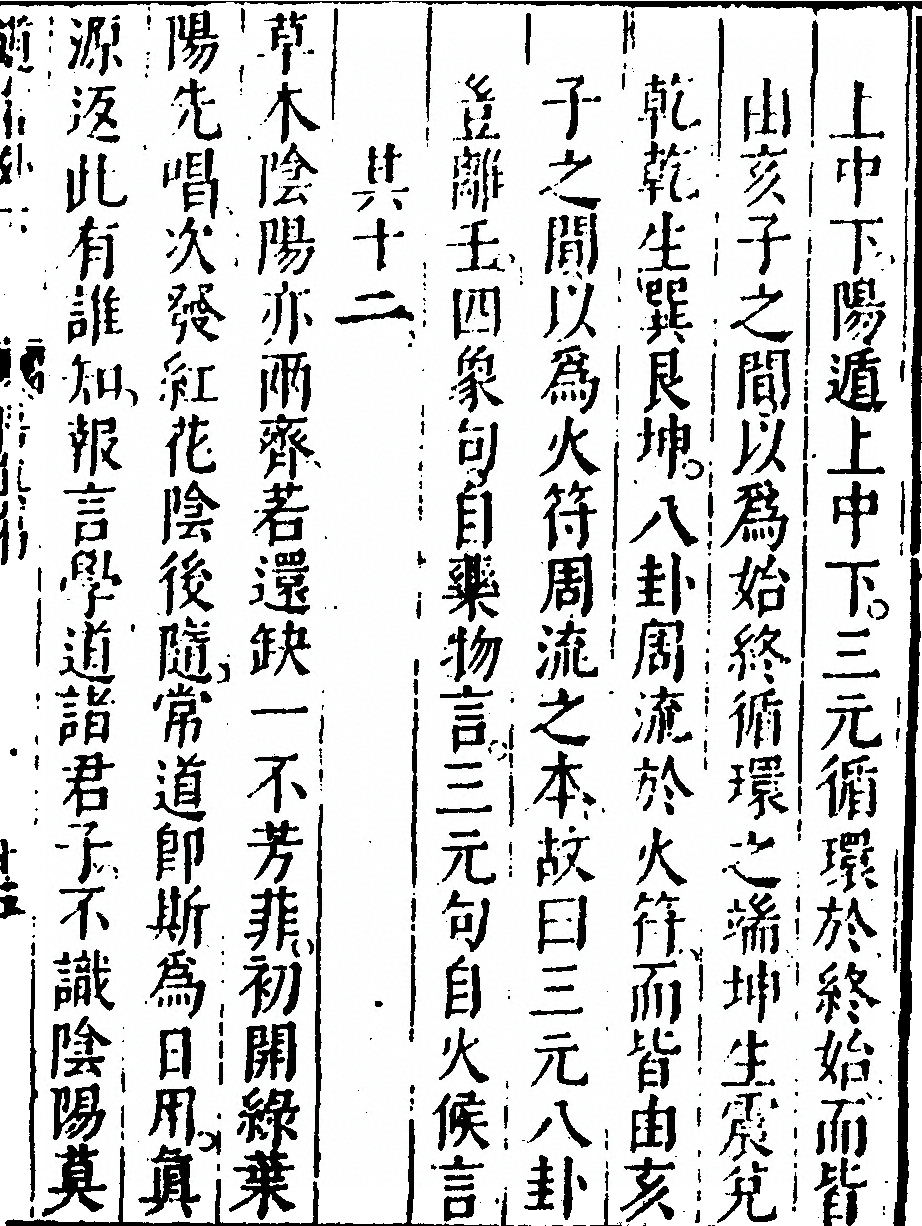 上中下陽遁上中下三元循環於終始而皆
由亥子之間以爲始終循環之端坤生震兌
乾乾生巽艮坤八卦周流於火符而皆由亥
子之間以爲火符周流之本故曰三元八卦
豈離壬四象句自藥物言三元句自火候言
其十二
草木陰陽亦兩齊若還缺一不芳菲初開綠葉
陽先唱次發紅花陰後隨常道卽斯爲日用眞
源返此有誰知報言學道諸君子不識陰陽莫